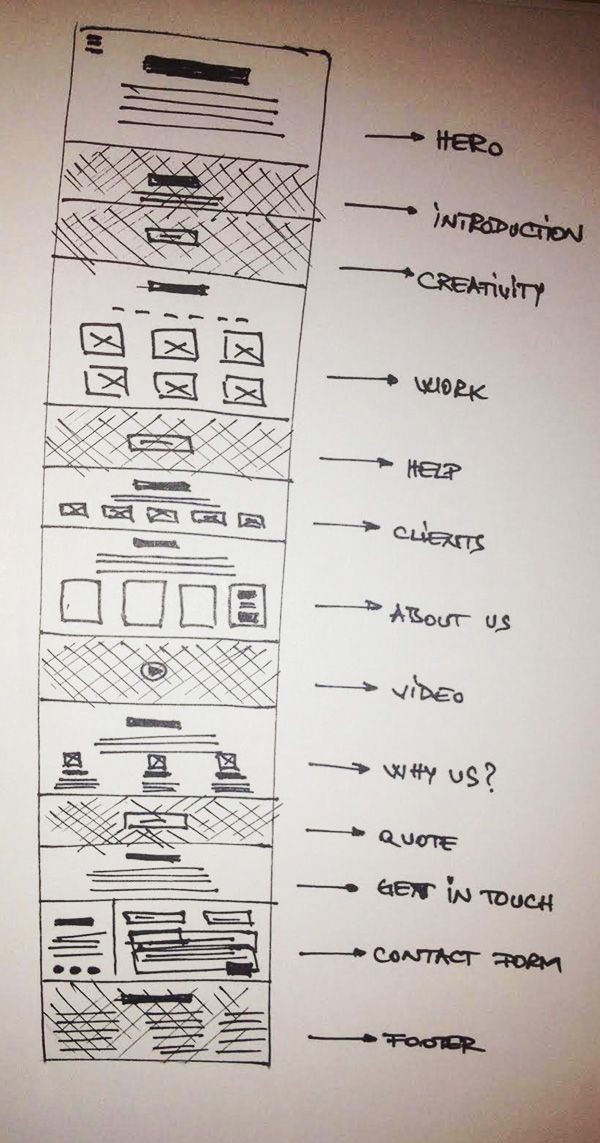 HERO
INTRODUCTION
CREATIVITY
WORK
HELP
CLIENTS
ABOUT US
VIDEO
WHY US?
QUOTE
GET IN TOUCH
CONTACT FORM
FOOTER